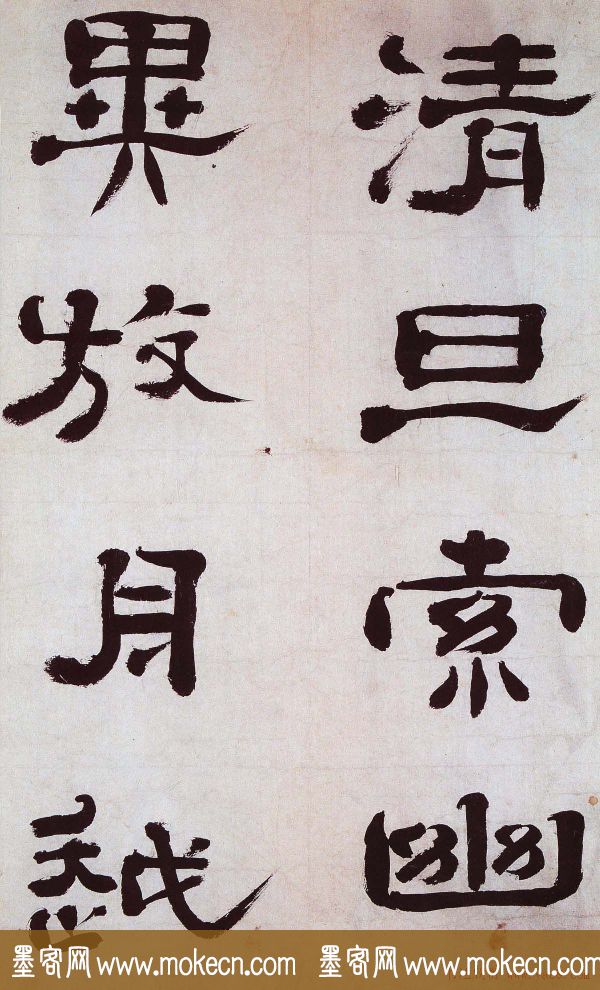 清旦索幽
異放舟越
墨客网 www.mokecn.com 墨客网 www.mokecn.com